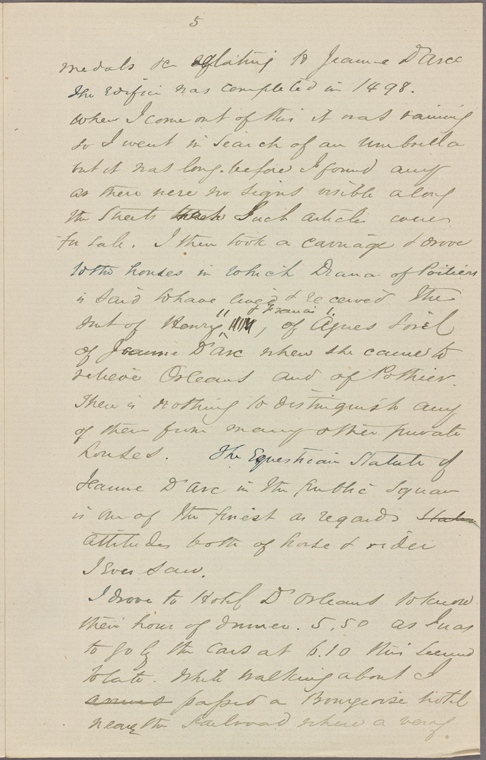 5
medals &c relating to Jeanne D'Arc
The edifice was completed in 1498.
When I come out of this it was raining
so I went in search of an umbrella
but it was long before I found any
as there were no signs visible along
the streets such article were
for sale. I then took a carriage & drove
to the houses in which Diana of Poitiers
is said to have lived & received the
& Francis 1.
out of Henry II, of Agnes Sorel
of Jeanne D'Arc when she came to
relieve Orleans and of Pothier.
There is nothing to distinguish any
of them from many other private
houses. The Equestrian Statute of
Jeanne D'Arc in the Public Square
is one of the finest as regards
attitudes both of horse & rider
I ever saw.
I drove to Hotel D'Orleans to know
their hour of dinner. 5.50 as I was
to go by the Cars at 6.10 this seemed
to late. While walking about I
passed a Bourgeoise hotel
near the Railroad where a very